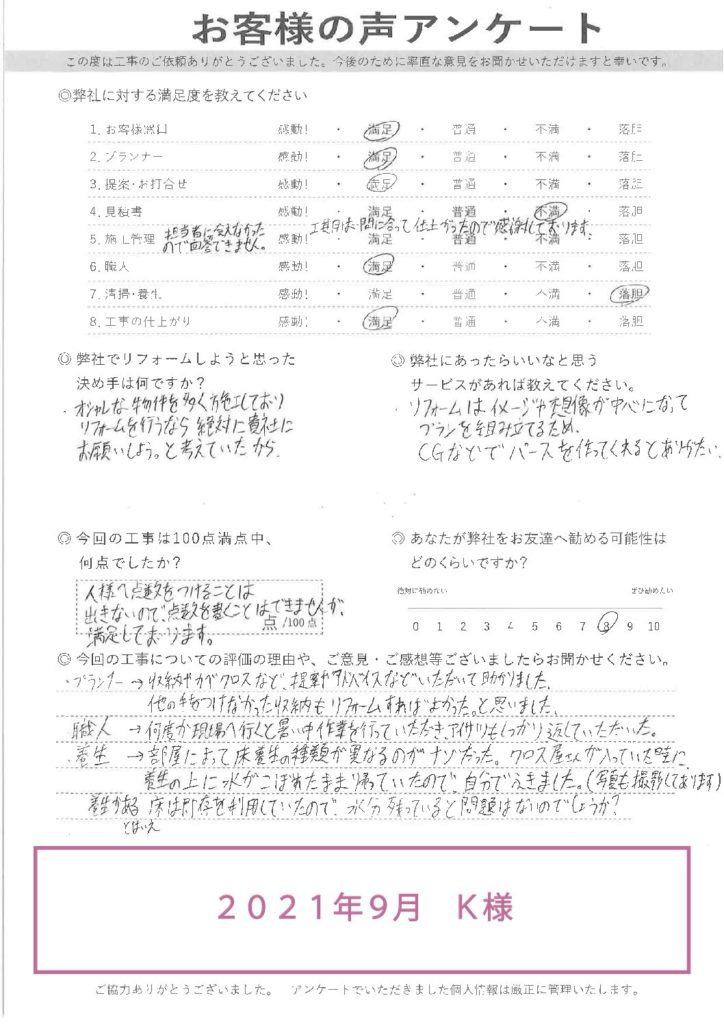 お客様の声アンケート
この度は工事のご依頼ありがとうございました。今後のために率直な意見をお聞かせいただけますと幸いです。
◎弊社に対する満足度を教えてください
1. お客様窓口 感動! ・ 満足 ・ 普通 ・ 不満 ・ 落胆
2. プランナー 感動! ・ 満足 ・ 普通 ・ 不満 ・ 落胆
3. 提案・お打合せ 感動! ・ 満足 ・ 普通 ・ 不満 ・ 落胆
4. 見積書 感動! ・ 満足 ・ 普通 ・ 不満 ・ 落胆
担当者に会えなかった 工期は間に合って仕上がったので感謝しております。
5. 施工管理 ので回答できません。 感動! ・ 満足 ・ 普通 ・ 不満 ・ 落胆
6. 職人 感動! ・ 満足 ・ 普通 ・ 不満 ・ 落胆
7. 清掃・養生 感動! ・ 満足 ・ 普通 ・ 不満 ・ 落胆
8. 工事の仕上がり 感動! ・ 満足 ・ 普通 ・ 不満 ・ 落胆
◎ 弊社でリフォームしようと思った
決め手は何ですか?
・オシャレな物件を多く施工しており
リフォームを行うなら絶対に貴社に
お願いしよう。と考えていたから
◎ 弊社にあったらいいなと思う
サービスがあれば教えてください。
・リフォームはイメージや想像が中心になって
プランを組み立てるため、
CGなどでパースを作ってくれるとありがたい。
◎ 今回の工事は100点満点中、
何点でしたか?
人様へ点数をつけることは
出きないので、点数を書くことはできませんが、
満足しております。
点 /100点
◎ あなたが弊社をお友達へ勧める可能性は
どのくらいですか?
絶対に勧めない ぜひ勧めたい
0 1 2 3 4 5 6 7 8 9 10
◎ 今回の工事についての評価の理由や、ご意見・ご感想等ございましたらお聞かせください。
・プランナー → 収納やカベクロスなど、提案やアドバイスなどいただいて助かりました。
他の手をつけなかった収納もリフォームすればよかった。と思いました。
職人 → 何度か現場へ行くと暑い中作業を行っていただき、アイサツもしっかり返していただいた。
・養生 → 部屋によって床養生の種類が異なるのがナゾだった。クロス屋さんが入っていた時に、
養生の上に水がこぼれたまま帰っていたので、自分でふきました。(写真も撮影しております)
養生がある 床は既存を利用していたので、水分残っていると問題はないのでしょうか?
とはいえ
2021年9月 K様
ご協力ありがとうございました。 アンケートでいただきました個人情報は厳正に管理いたします。